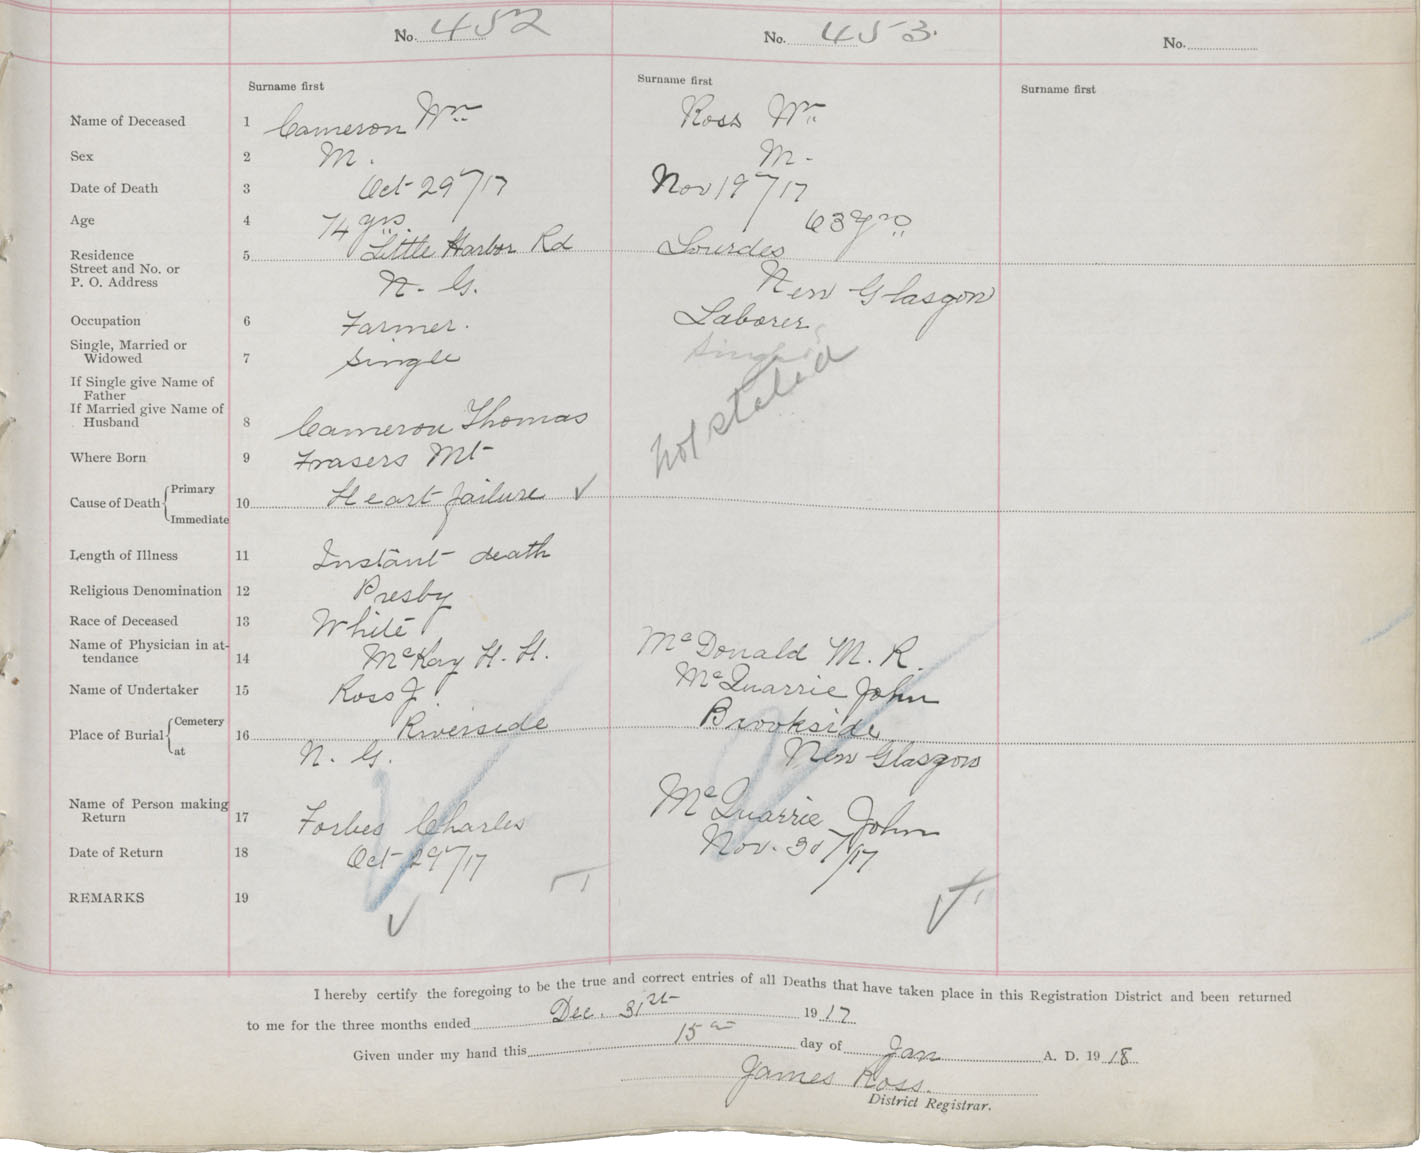 No. 452
No. 453.
No.
Surname first
Surname first
Surname first
Name of Deceased 1 Cameron Wm Ross Wm
Sex 2 M. M.
Date of Death 3 Oct 29th/17 Nov 19th/17
Age 4 74 yrs 63 yrs
Residence
Street and No. or
P. O. Address
5 Little Harbor Rd Lourdes
N. G. New Glasgow
Occupation 6 Farmer. Laborer
Single, Married or
Widowed 7 Single Single
not stated
If Single give Name of
Father
If Married give Name of
Husband 8 Cameron Thomas
Where Born 9 Frasers Mt
Cause of Death { Primary
Immediate
10 Heart failure ✓
Length of Illness 11 Instant death
Religious Denomination 12 Presby
Race of Deceased 13 White
Name of Physician in at-
tendance 14 McKay H. H. McDonald M. R.
Name of Undertaker 15 Ross J. McQuarrie John
Place of Burial { Cemetery
at
16 Riverside Brookside
N. G. New Glasgow
Name of Person making
Return 17 Forbes Charles McQuarrie John
Date of Return 18 Oct 29th/17 Nov. 30th/17
REMARKS 19
I hereby certify the foregoing to be the true and correct entries of all Deaths that have taken place in this Registration District and been returned
to me for the three months ended Dec. 31st 1917
Given under my hand this 15th day of Jan A. D. 1918
James Ross.
District Registrar.